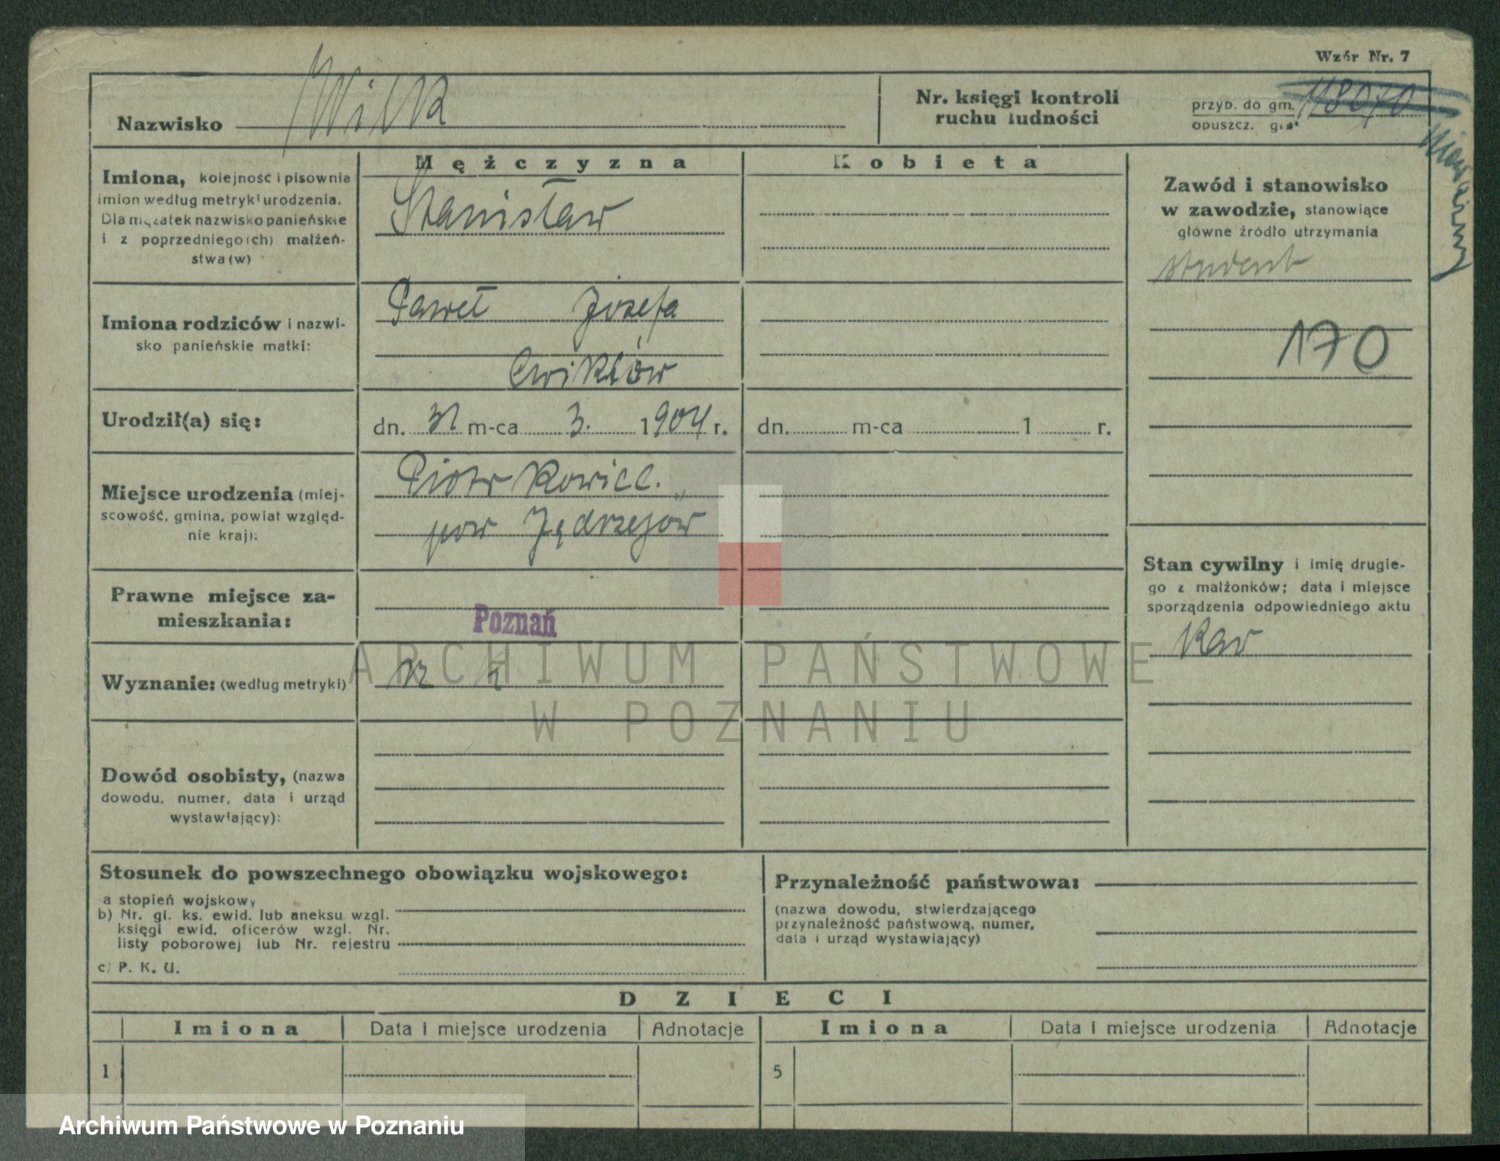 Wzór Nr. 7
Nazwisko Wilk
Nr. księgi kontroli
ruchu ludności
przyb. do gm. 118070
opuszcz. gm.
Mężczyzna
Kobieta
Imiona, kolejność i pisownia
imion według metryki urodzenia.
Dla mężatek nazwisko panieńskie
i z poprzedniego(ch) małżeń-
stwa(w)
Stanisław
Zawód i stanowisko
w zawodzie, stanowiące
główne źródło utrzymania
student
170
Imiona rodziców i nazwi-
sko panieńskie matki:
Paweł Józefa
Ćwiklów
Urodził(a) się:
dn. 31 m-ca 3. 1904 r.
dn. m-ca 1 r.
Miejsce urodzenia (miej-
scowość, gmina, powiat względ-
nie kraj):
pow Jędrzejów
Stan cywilny i imię drugie-
go z małżonków; data i miejsce
sporządzenia odpowiedniego aktu
kaw
Prawne miejsce za-
mieszkania:
Poznań
Wyznanie: (według metryki)
ARCHIWUM PAŃSTWOWE
W POZNANIU
Dowód osobisty, (nazwa
dowodu, numer, data i urząd
wystawiający):
Stosunek do powszechnego obowiązku wojskowego:
a stopień wojskowy
b) Nr. gł. ks. ewid. lub aneksu wzgl.
księgi ewid. oficerów wzgl. Nr.
listy poborowej lub Nr. rejestru
c) P. K. U.
Przynależność państwowa:
(nazwa dowodu, stwierdzającego
przynależność państwową, numer,
data i urząd wystawiający)
DZIECI
Imiona Data i miejsce urodzenia Adnotacje Imiona Data i miejsce urodzenia Adnotacje
1 5
Archiwum Państwowe w Poznaniu